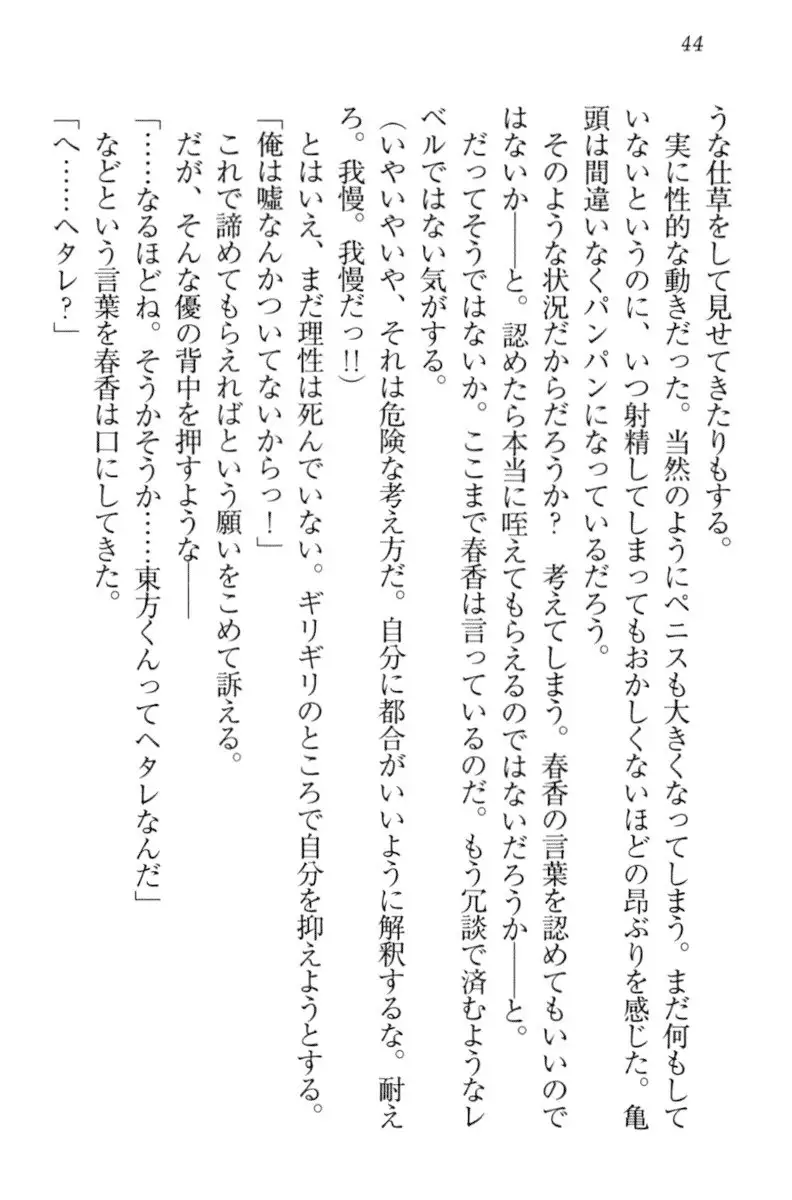 44
うな仕草をして見せてきたりもする。
実に性的な動きだった。当然のようにペニスも大きくなってしまう。まだ何もして
いないというのに、いつ射精してしまってもおかしくないほどの昂ぶりを感じた。亀
頭は間違いなくパンパンになっているだろう。
そのような状況だからだろうか？　考えてしまう。春香の言葉を認めてもいいので
はないか――と。認めたら本当に咥えてもらえるのではないだろうか――と。
だってそうではないか。ここまで春香は言っているのだ。もう冗談で済むようなレ
ベルではない気がする。
（いやいやいや、それは危険な考え方だ。自分に都合がいいように解釈するな。耐え
ろ。我慢。我慢だっ!!）
とはいえ、まだ理性は死んでいない。ギリギリのところで自分を抑えようとする。
「俺は嘘なんかついてないからっ！」
これで諦めてもらえればという願いをこめて訴える。
だが、そんな優の背中を押すような――
「……なるほどね。そうかそうか……東方くんってヘタレなんだ」
などという言葉を春香は口にしてきた。
「へ……ヘタレ？」